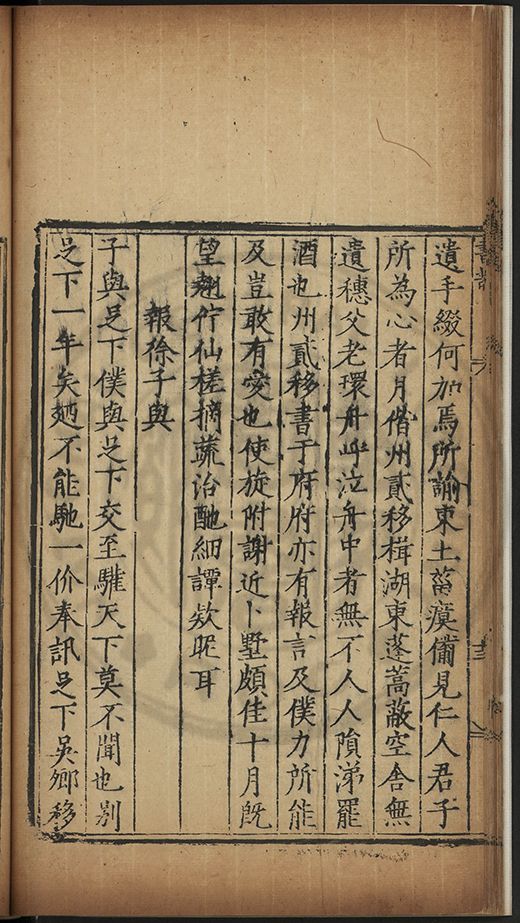 遺手綴何加焉所諭東土菑瘼備見仁人君子
所為心者月偕州貳移楫湖東蓬蒿蔽空舍無
遺穗父老環舟呼泣舟中者無不人人隕涕罷
酒也州貳移書于府府亦有報言及僕力所能
及豈敢有愛也使旋附謝近卜墅頗佳十月既
望翹佇仙槎摘蔬治酏細譚欵昵耳
報徐子與
子與足下僕與足下交至驩天下莫不聞也别
足下一年矣廼不能馳一价奉訊足下吳鄉移